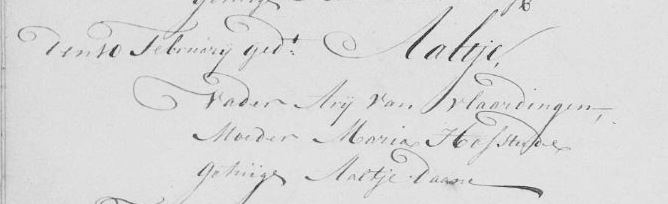 den 10 February ged.t Aaltje,
Vader Arij van Vlaardingen,
Moeder Maria Hofstede
getuige Aaltje Daane